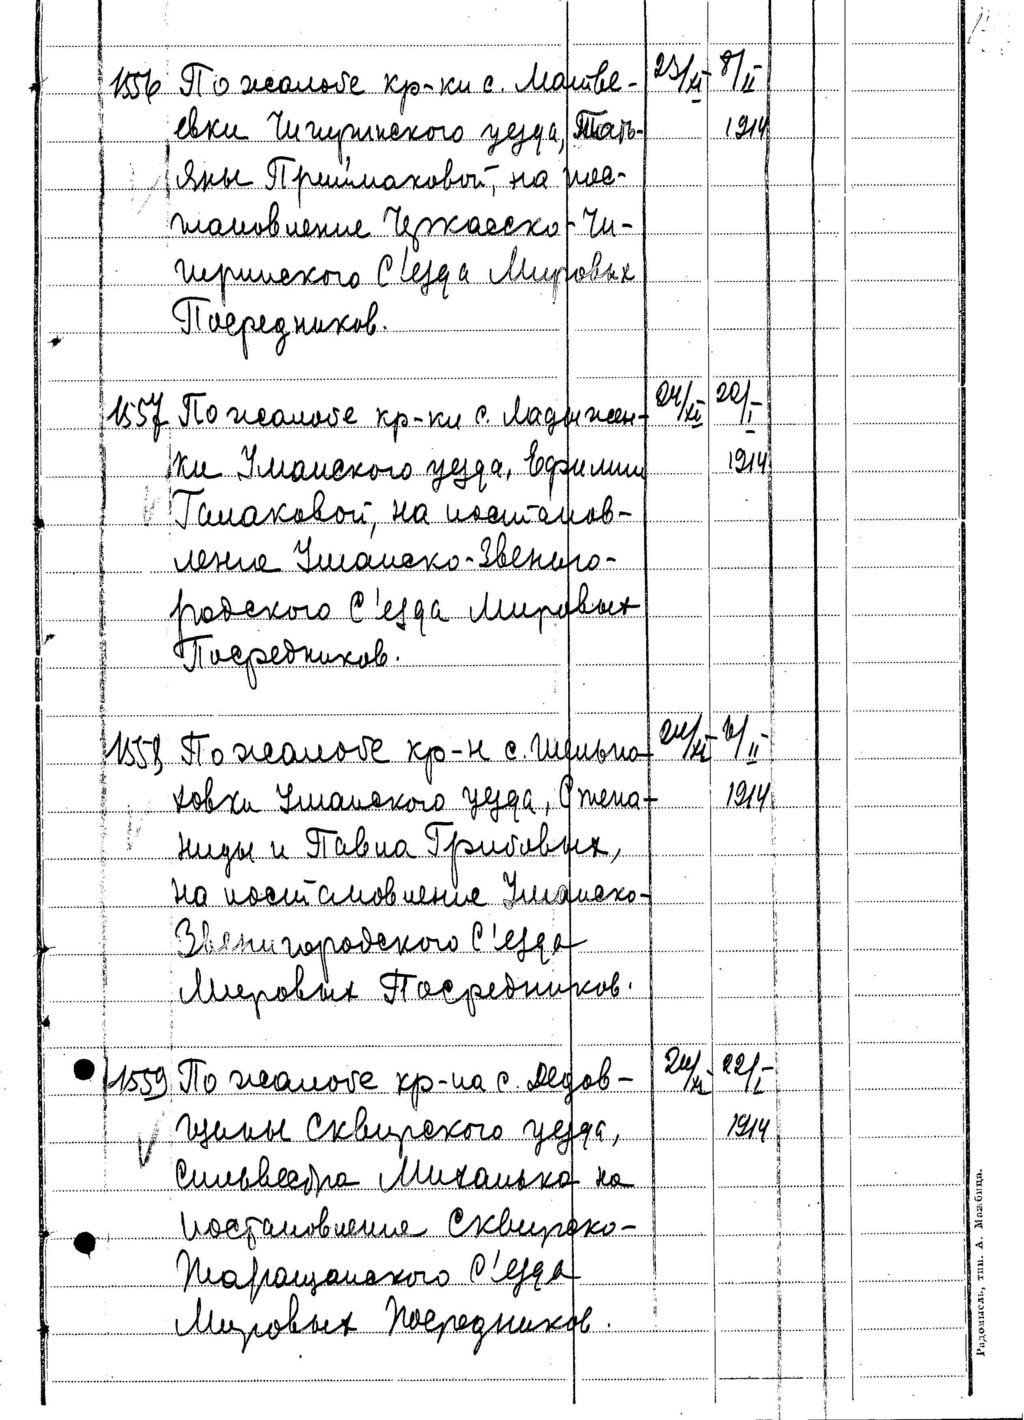 1556 По жалобе кр-ки с. Матве- 23/XI 8/II
евки Чигиринского уезда, Тать- 1914
яны Приймаковой, на пос-
тановление Черкасско-Чи-
гиринского С'езда Мировых
Посредников.
1557 По жалобе кр-ки с. Ладыжен- 24/XI 20/I
ки Уманского уезда, Ефимии 1914
Гамаковой, на постанов-
ление Уманско-Звениго-
родского С'езда Мировых
Посредников.
1558 По жалобе кр-н с. Шельпа- 24/XI /II
ховки Уманского уезда, Степа- 1914
ниды и Павла Грибовых,
на постановление Уманско-
Звенигородского С'езда
Мировых Посредников.
1559 По жалобе кр-на с. Дедов- 24/XI 22/I
щины Сквирского уезда, 1914
Сильвестра Михалька на
постановление Сквирско-
Таращанского С'езда
Мировых Посредников.
Радомысль, тип. А. Мажбица.